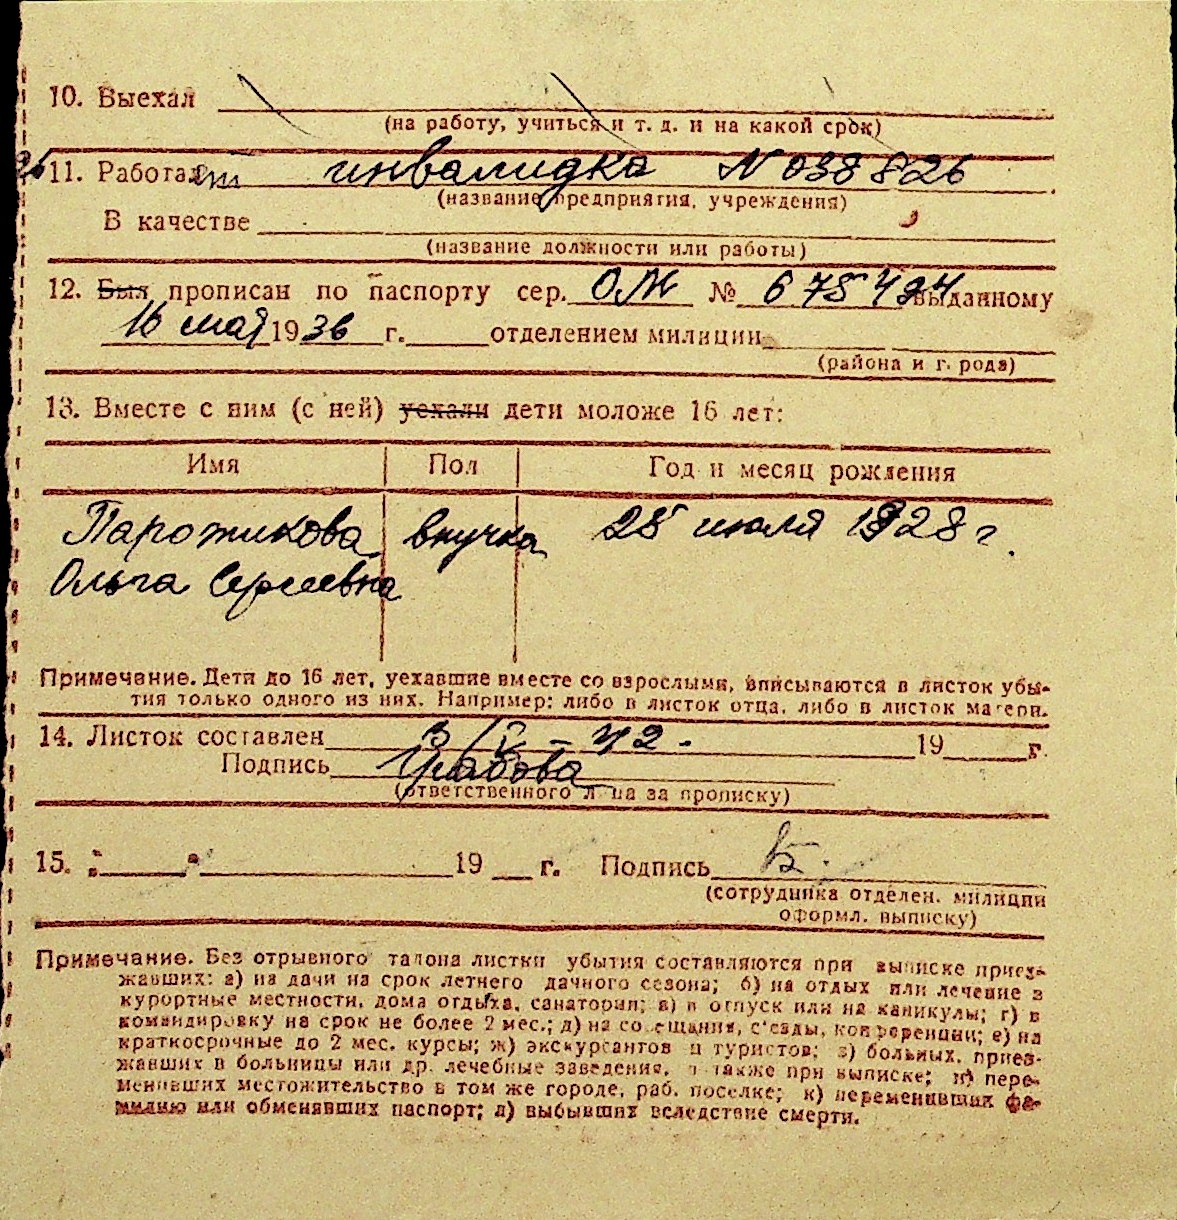 10. Выехал
(на работу, учиться и т. д. и на какой срок)
11. Работает инвалидка N 038826
(название предприятия, учреждения)
В качестве
(название должности или работы)
12. Был прописан по паспорту сер. ОЖ № 678494 выданному
16 мая 1936 г. отделением милиции
(района и города)
13. Вместе с ним (с ней) уехали дети моложе 16 лет:
Имя Пол Год и месяц рождения
Парожикова внучка 28 июля 1928 г.
Ольга Сергеевна
Примечание. Дети до 16 лет, уехавшие вместе со взрослыми, вписываются в листок убы-
тия только одного из них. Например: либо в листок отца, либо в листок матери.
14. Листок составлен 3/V - 42. 19 г.
Подпись
(ответственного лица за прописку)
15. " " 19 г. Подпись
(сотрудника отделен. милиции
оформл. выписку)
Примечание. Без отрывного талона листки убытия составляются при выписке приез-
жавших: а) на дачи на срок летнего дачного сезона; б) на отдых или лечение в
курортные местности, дома отдыха, санатории; в) в отпуск или на каникулы; г) в
командировку на срок не более 2 мес.; д) на совещания, с'езды, конференции; е) на
краткосрочные до 2 мес. курсы; ж) экскурсантов и туристов; з) больных, приез-
жавших в больницы или др. лечебные заведения, а также при выписке; и) пере-
менивших местожительство в том же городе, раб. поселке; к) переменивших фа-
милию или обменявших паспорт; л) выбывших вследствие смерти.